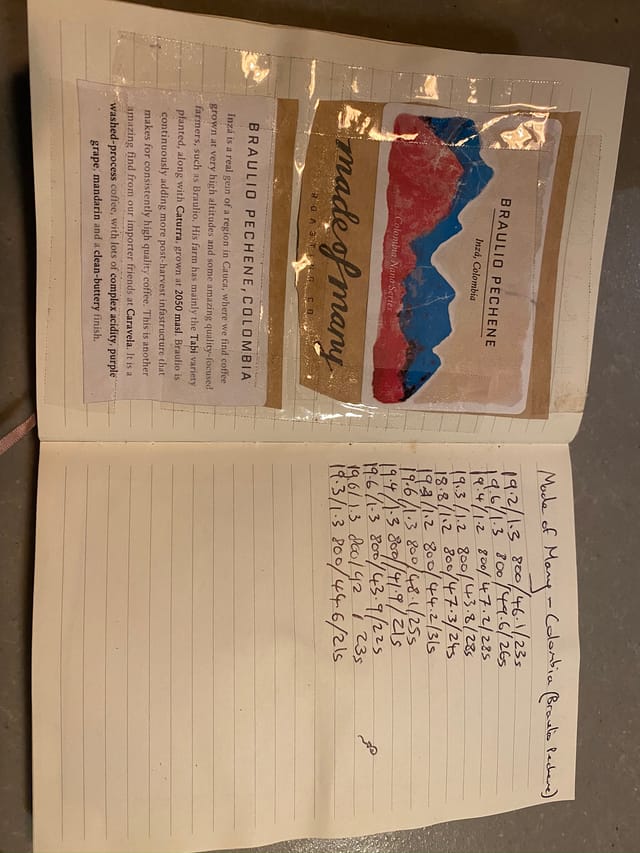 BRAULIO PECHENE
Inzá, Colombia
Colombia Nano Series
made of many
ROASTING CO.
BRAULIO PECHENE, COLOMBIA
Inzá is a real gem of a region in Cauca, where we find coffee
grown at very high altitudes and some amazing quality-focused
farmers, such as Braulio. His farm has mainly the Tabi variety
planted, along with Caturra, grown at 2050 masl. Braulio is
continuously adding more post-harvest infastructure that
makes for consistently high quality coffee. This is another
amazing find from our importer friends at Caravela. It is a
washed-process coffee, with lots of complex acidity, purple
grape, mandarin and a clean-buttery finish.
Made of Many - Colombia (Braulio Pechene)
19.2/1.3 800/46.1/23s
19.6/1.3 800/49.6/26s
19.4/1.2 800/47.2/28s
19.3/1.2 800/43.8/28s
18.8/1.2 800/47.3/24s
19.8/1.2 800/44.2/31s
19.6/1.3 800/48.1/25s
19.4/1.3 800/41.9/21s
19.6/1.3 800/43.9/22s
19.6/1.3 800/42 / 23s
19.3/1.3 800/44.6/21s